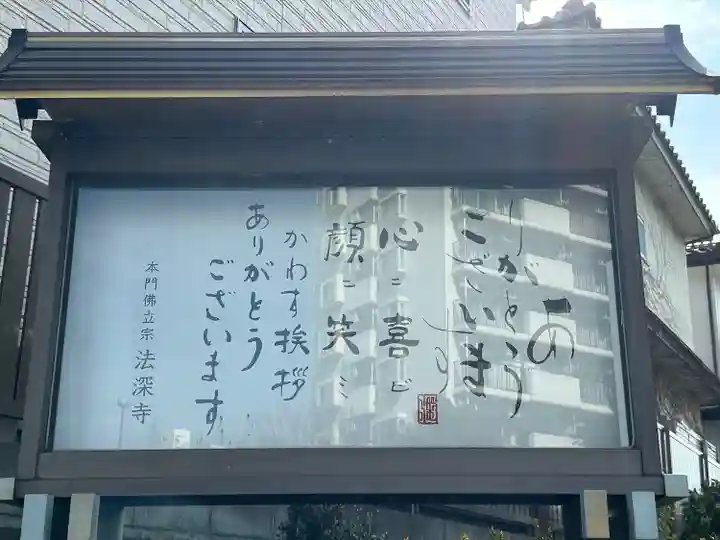 ありがとう
ございます
心ニ喜ビ
顔ニ笑ミ
かわす挨拶
ありがとう
ございます
本門佛立宗 法深寺